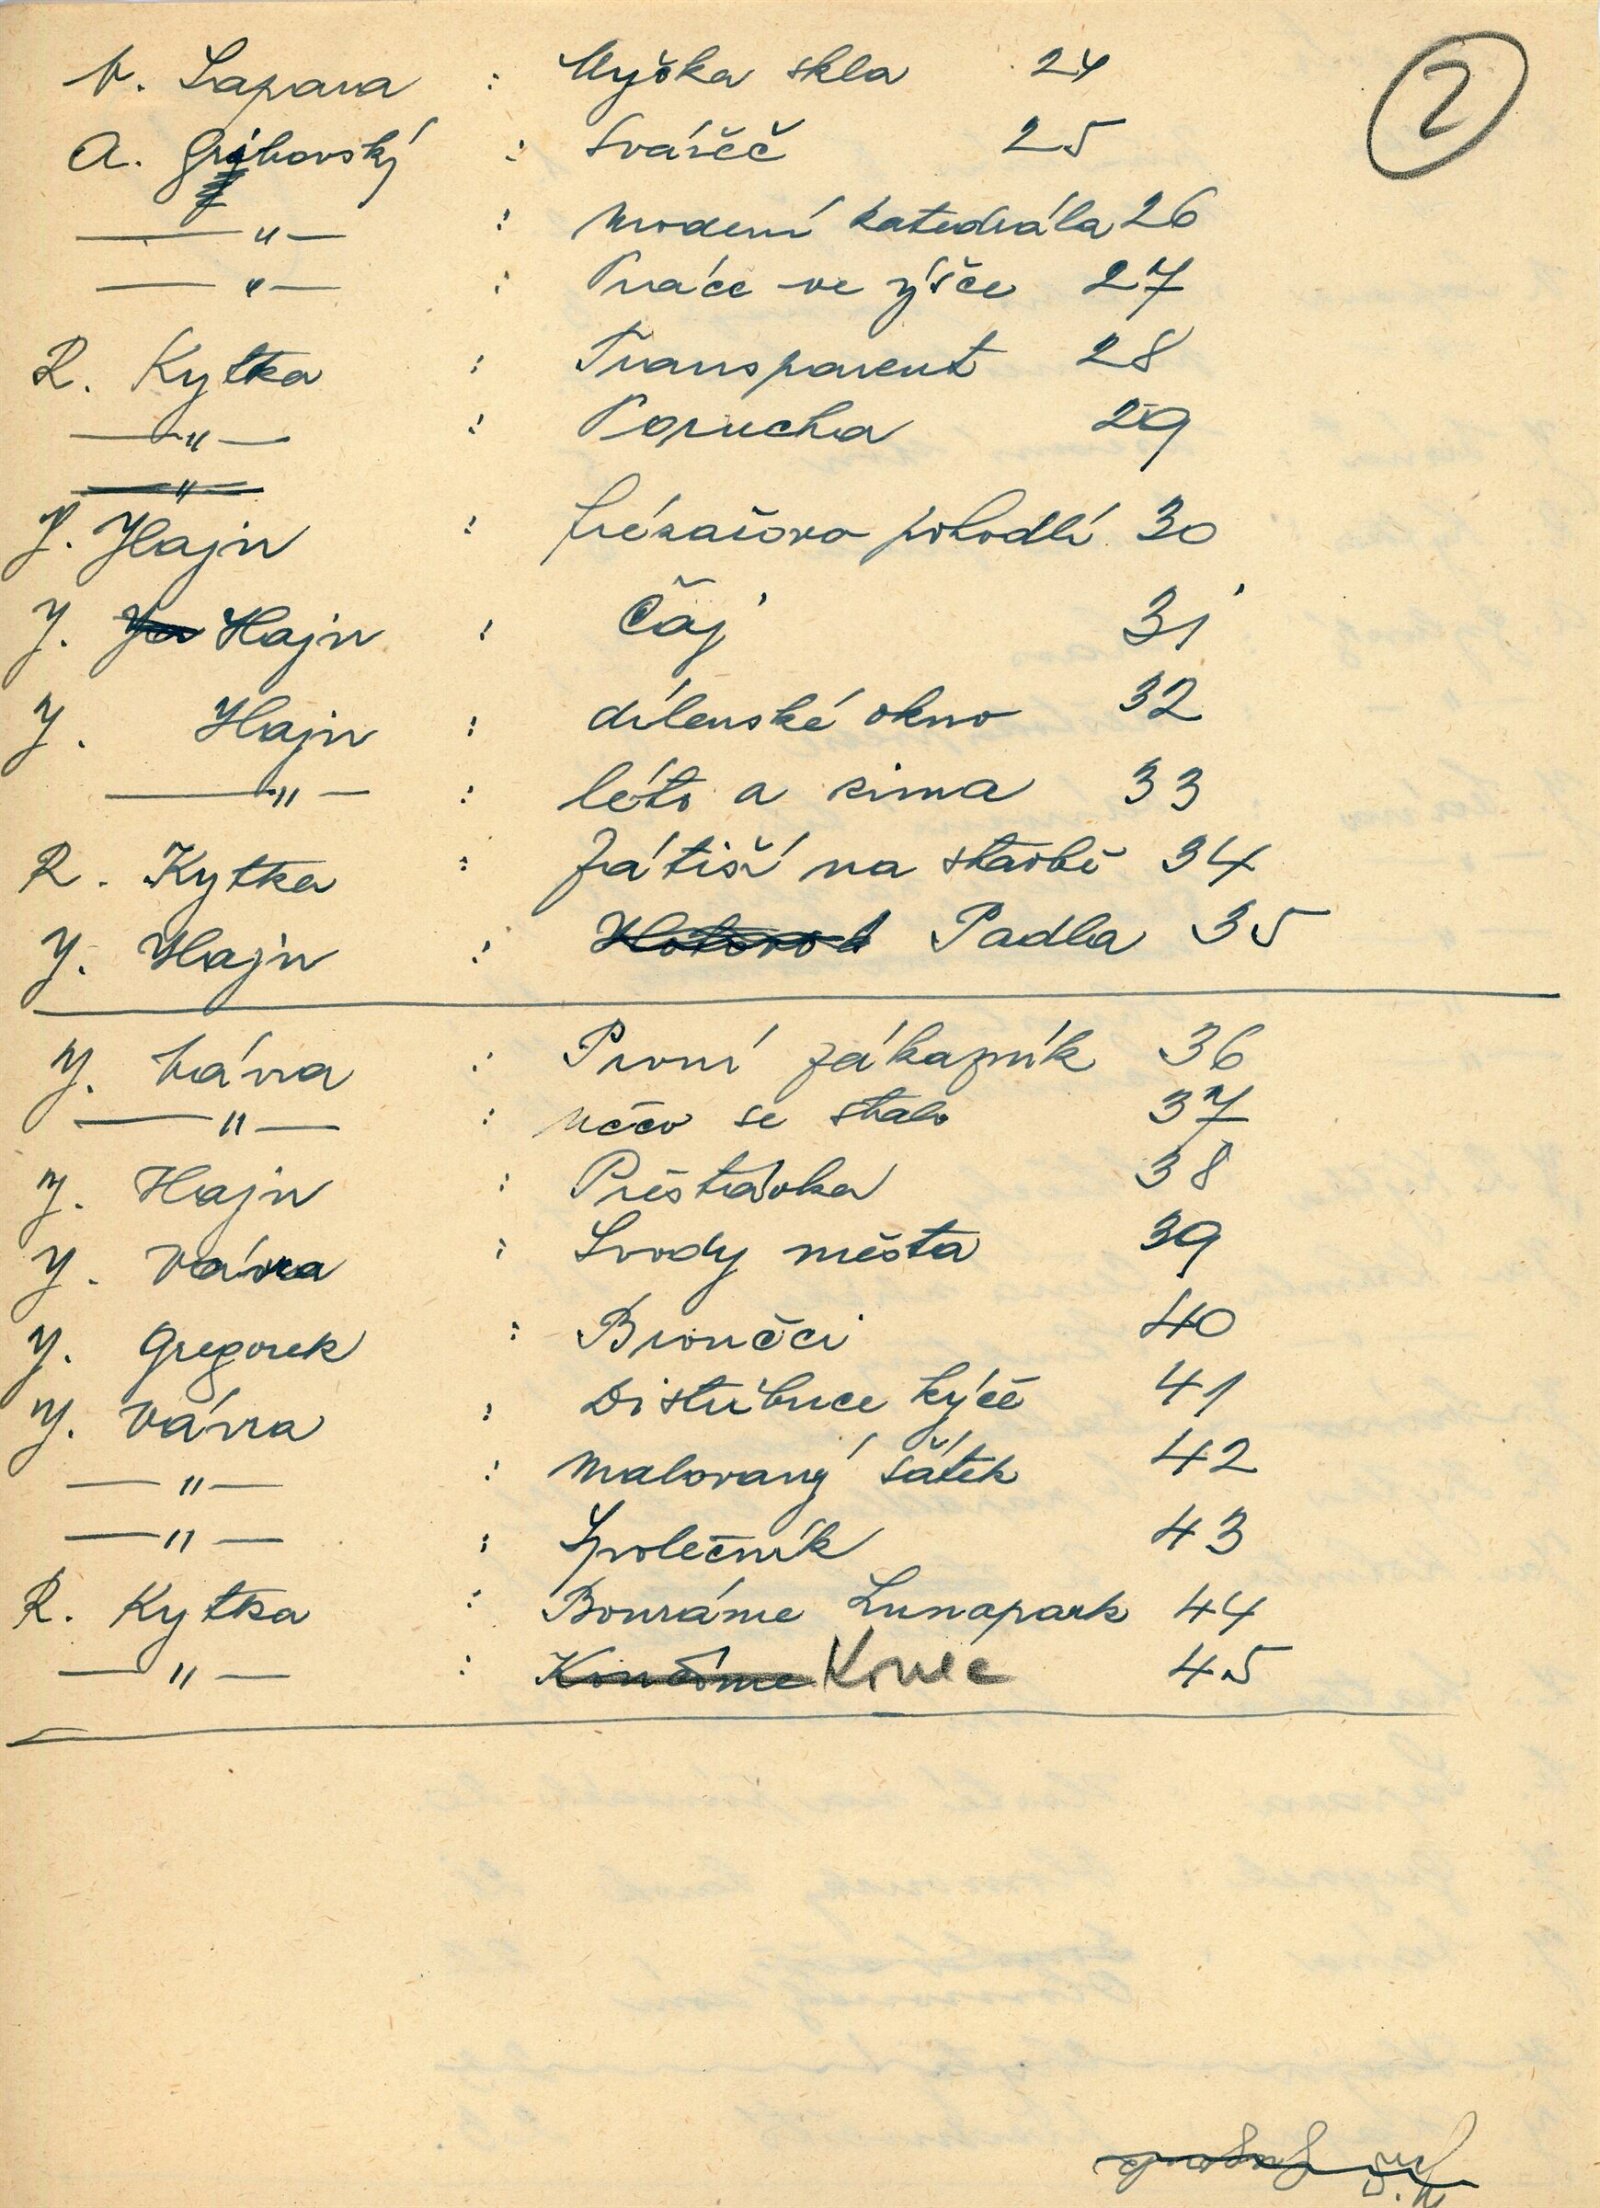 2
V. Lapara : Myčka skla 24
A. Gribovský : Svářeč 25
—"— : moderní katedrála 26
—"— : Práce ve výšce 27
R. Kytka : Transparent 28
—"— : Porucha 29
—"—
J. Hajn : frézařovo pohodlí 30
J. Hajn : Čaj 31
J. Hajn : dílenské okno 32
—"— : léto a zima 33
R. Kytka : Zátiší na stavbě 34
J. Hajn : Padla 35
J. Vávra : První zákazník 36
—"— : něco se stalo 37
J. Hajn : Přestávka 38
J. Vávra : Svody města 39
J. Gregorek : Brončci 40
J. Vávra : Distribuce kýčě 41
—"— : malovaný šátek 42
—"— : Společník 43
R. Kytka : Bouráme Lunapark 44
—"— : Končíme Konec 45